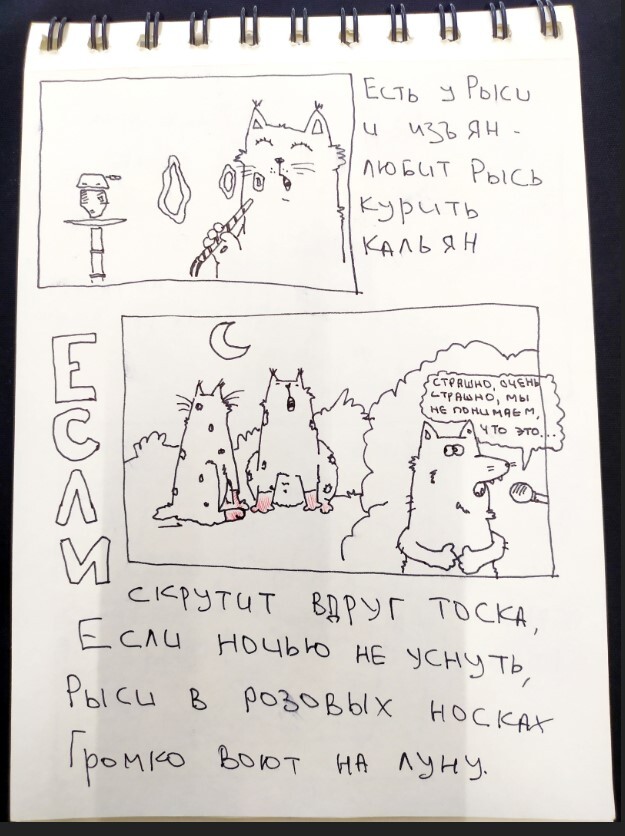 Есть у Рыси
и изъян -
любит Рысь
курить
кальян
СТРАШНО, ОЧЕНЬ
СТРАШНО, МЫ
НЕ ПОНИМАЕМ,
ЧТО ЭТО...
ЕСЛИ
скрутит вдруг тоска,
Если ночью не уснуть,
Рыси в розовых носках
Громко воют на луну.